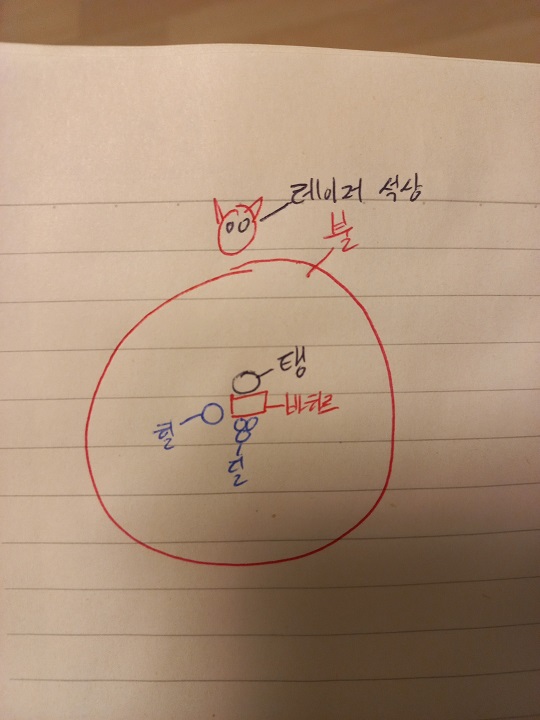 레이저 석상
불
탱
바타르
힐
딜